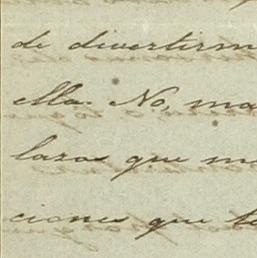 de divertirm
ella. No, ma
laras que m
ciones que te